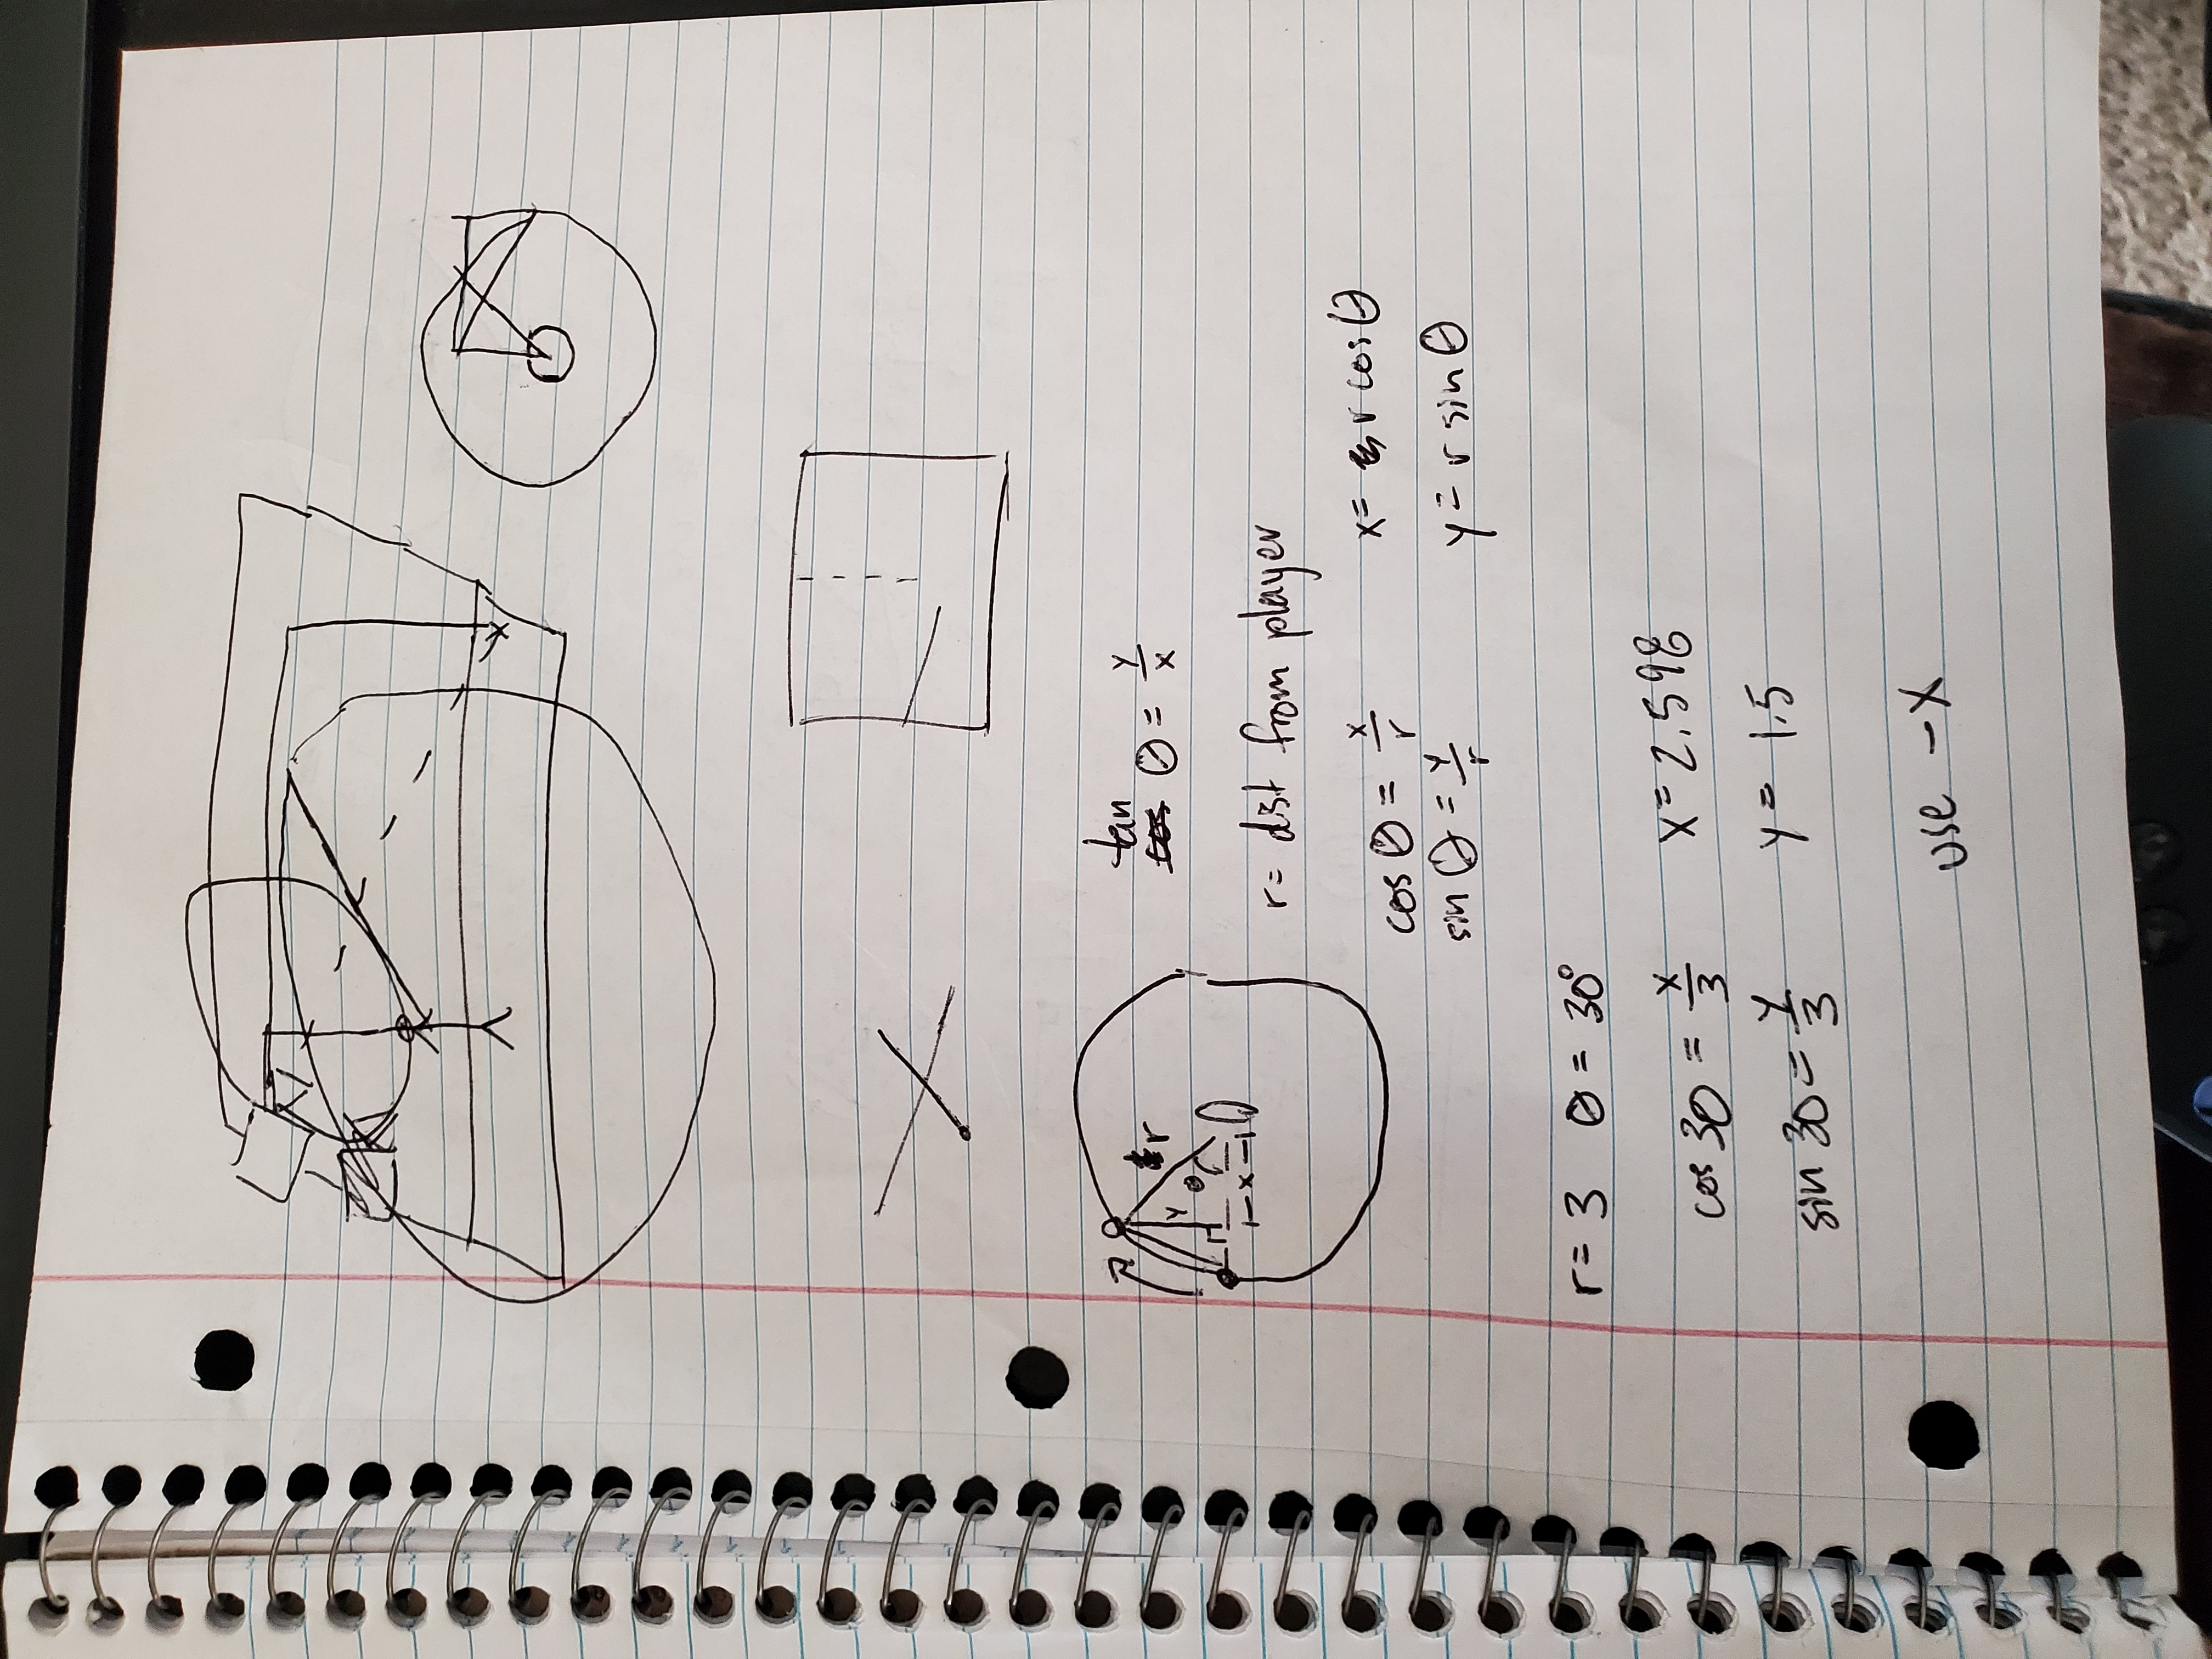 r
y
θ
x
tan
cos θ = y/x
r = dist from player
cos θ = x/r x = r cos θ
sin θ = y/r y = r sin θ
r = 3 θ = 30°
cos 30 = x/3 x = 2.598
sin 30 = y/3 y = 1.5
use -x